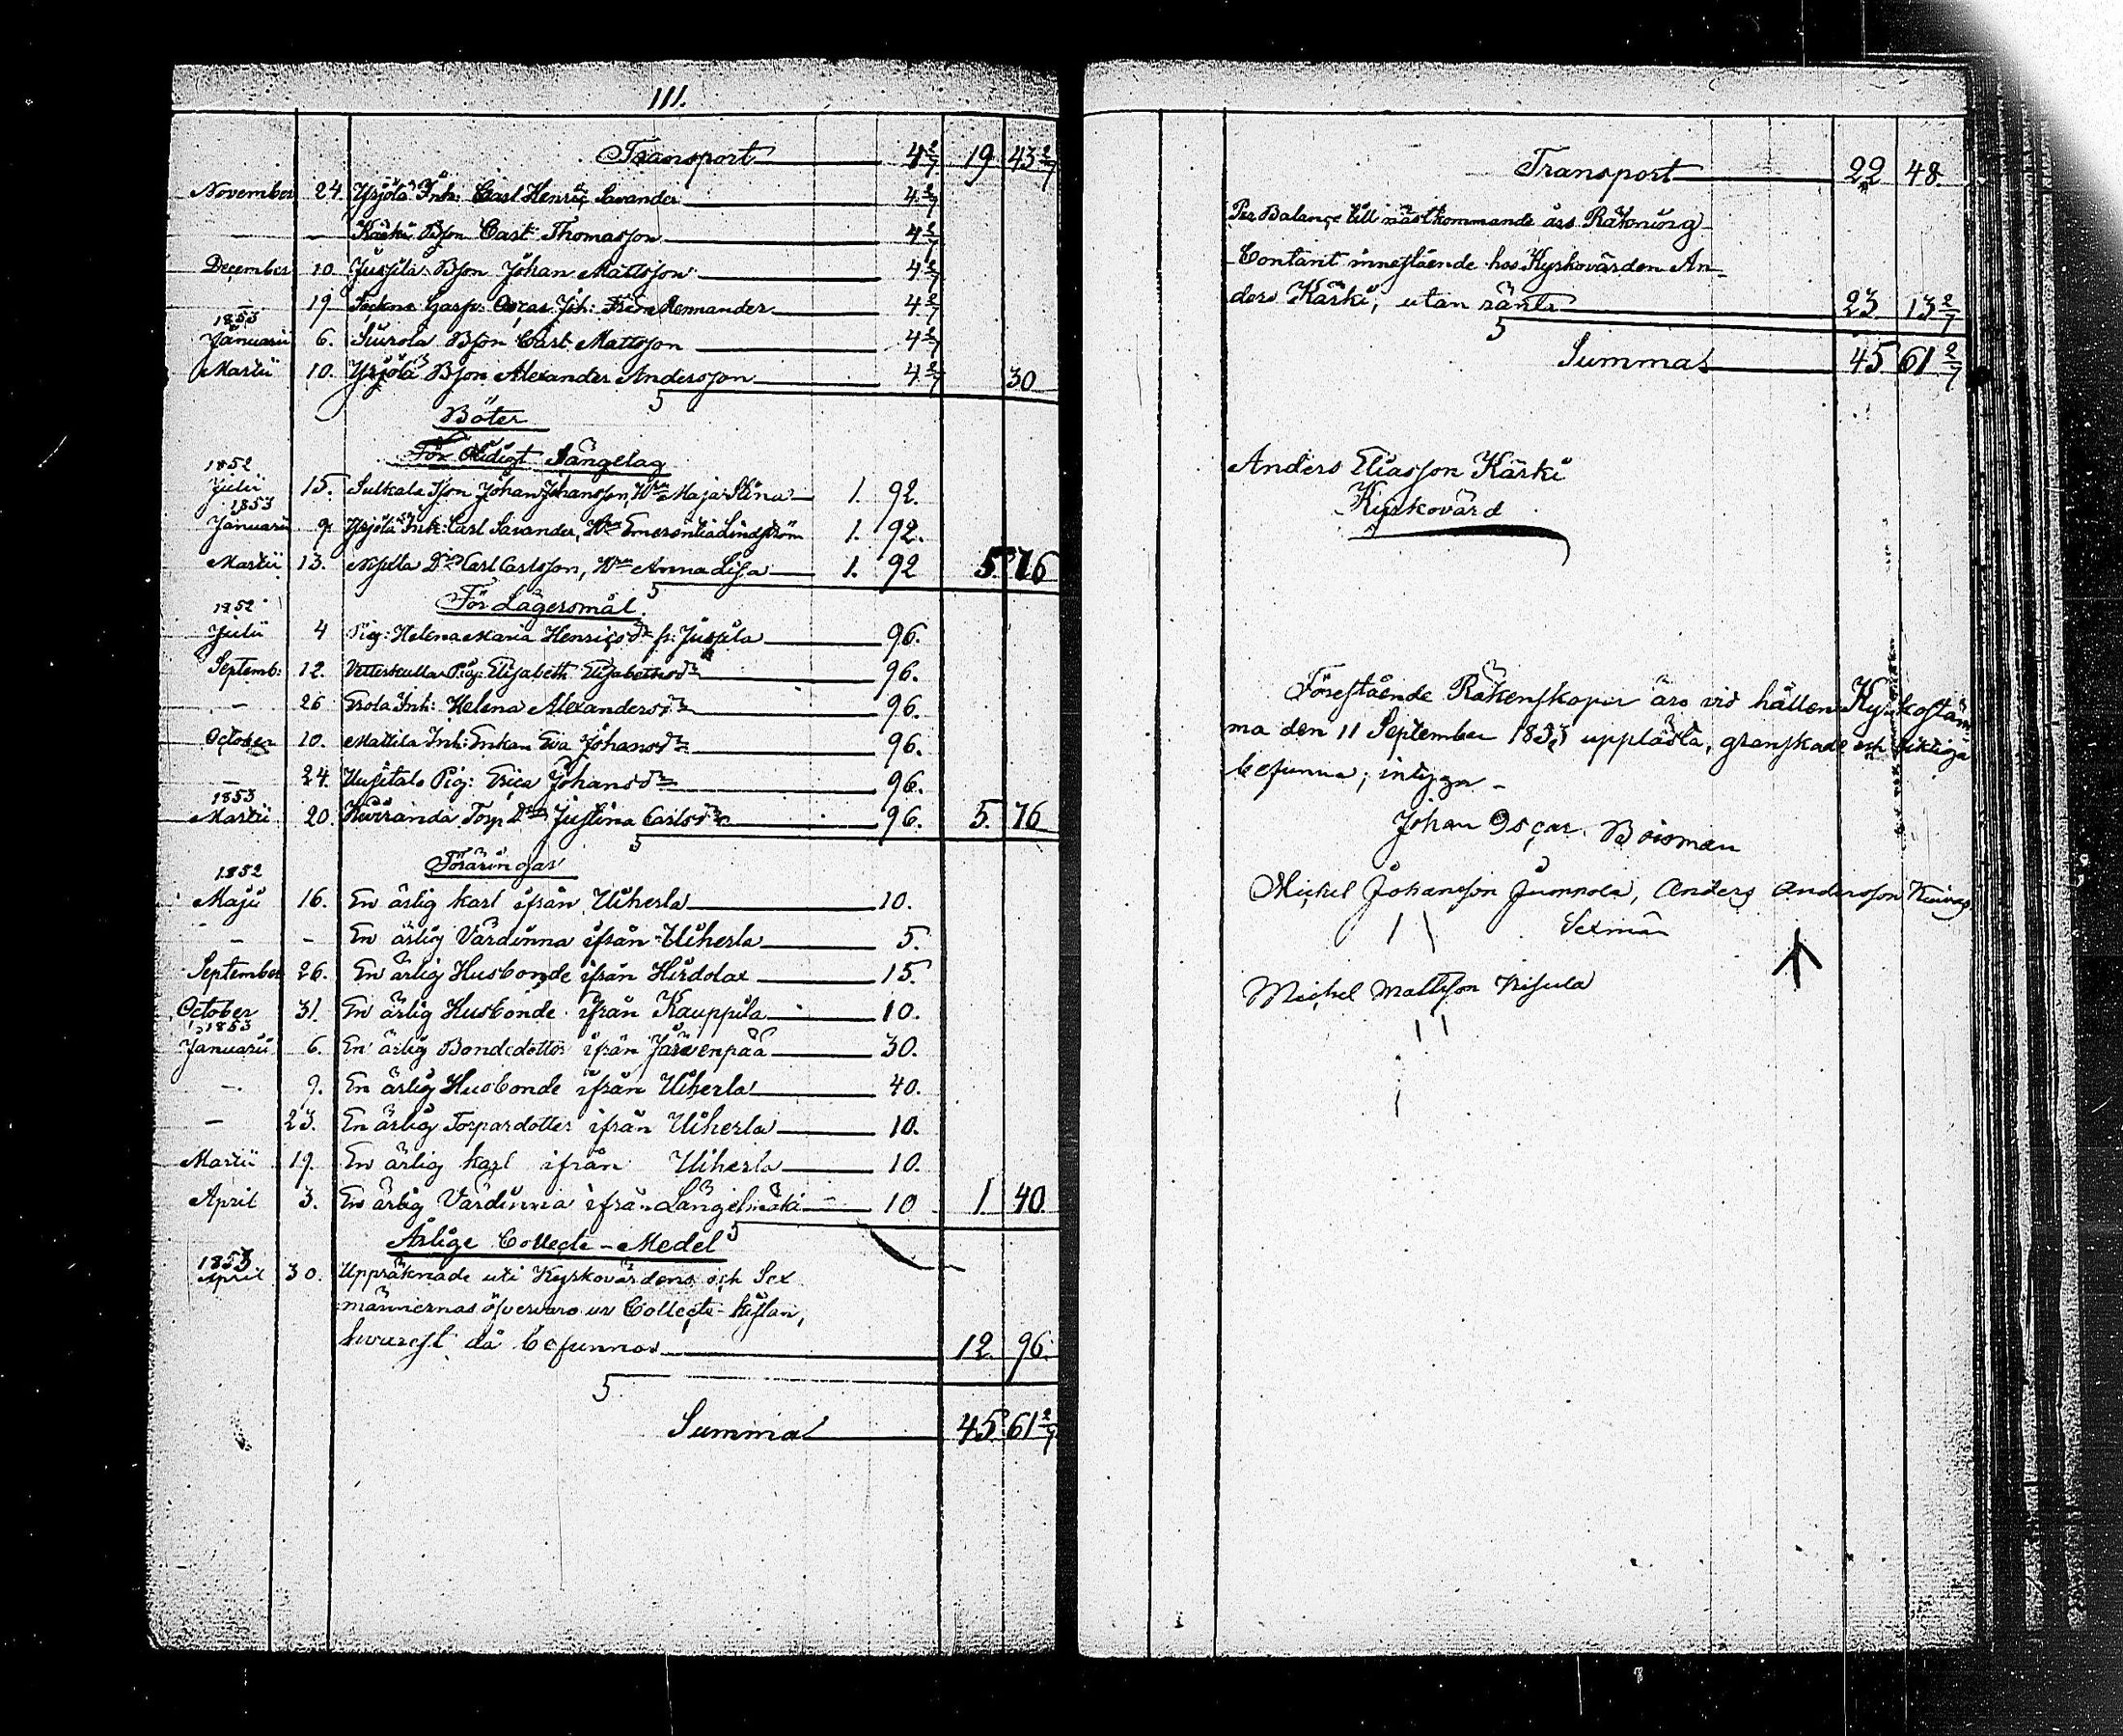 111.
Transport 4 2/7 19 43 2/7
November 24 Yrjölä Inh: Carl Henric Savander 4 2/7
— — Kärki Bson Carl Thomasson 4 2/7
December 10 Jussila Bson Johan Mattsson 4 2/7
— 19 Joh: Rennander 4 2/7
1853
Januarii 6. Suurola Bson Carl Mattsson 4 2/7
Martii 10. Yrjölä Bson Alexander Andersson 4 2/7 30
Böter
För Otidigt Sängelag
1852
Julii 15. Sulkala Johan Johansson, Hu Maja Stina 1. 92.
1853
Januarii 9. Yrjölä Inh: Carl Savander, Hu Emerentia Lindström 1. 92.
Martii 13. Carl Carlsson, Hu Anna Lisa 1. 92 5. 76
För Lägersmål.
1852
Julii 4 Pig: Helena Maria Henricsdr fr: Jussila 96.
Septemb: 12. Pig: Elisabeth Elisabethsdr 96.
— 26 Erola Inh: Helena Alexandersdr 96.
October 10. Mattila Inh: Enkan Eva Johansdr 96.
— 24. Uusitalo Pig: Erica Johansdr 96.
1853
Martii 20. Torp Dr Justina Carlsdr 96. 5. 76
Föräringar
1852
Maji 16. En ärlig karl ifrån Uiherla 10.
— — En ärlig Värdinna ifrån Uiherla 5.
September 26. En ärlig Husbonde ifrån Hirdolax 15.
October 31. En ärlig Husbonde ifrån Kauppila 10.
1853
Januarii 6. En ärlig Bondedotter ifrån Järvenpää 30.
— 9. En ärlig Husbonde ifrån Uiherla 40.
— 23. En ärlig Torpardotter ifrån Uiherla 10.
Martii 19. En ärlig karl ifrån Uiherla 10.
April 3. En ärlig Värdinna ifrån Längelmäki 10 1. 40
Årlige Collecte-Medel
1853
April 30. Uppräknade uti Kyrkovärdens och Sex
männernas öfvervaro ur Collecte-kistan,
hvarest då befunnos 12. 96.
Summa 45. 61 2/7
Transport 22 48.
Per Balance till nästkommande års Räkning
Contant innestående hos Kyrkovärden An-
ders Kärki, utan ränta 23. 13 2/7
Summa 45 61 2/7
Anders Eliasson Kärki
Kyrkovärd
Förestående Räkenskaper äro vid hållen Kyrkostäm
ma den 11 September 1853 upplästa, granskade och riktiga
befunna; intyga
Johan Oscar Boisman
Michel Johansson Jumppola, Anders Andersson
Sexmän
Michel Mattsson